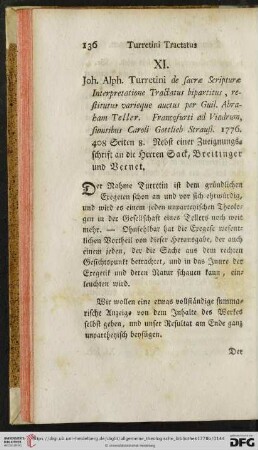 136 Turretini Tractatus
XI.
Joh. Alph. Turretini de sacræ Scripturæ
Interpretatione Tractatus bipartitus, re-
stitutus varioque auctus per Guil. Abra-
ham Teller. Francofurti ad Viadrum,
sumtibus Caroli Gottlieb Strauß. 1776.
408 Seiten 8. Nebst einer Zueignungs-
schrift an die Herren Sack, Breitinger
und Vernet.
Der Nahme Turretin ist dem gründlichen
Exegeten schon an und vor sich ehrwürdig,
und wird es einem jeden unpartheyischen Theolo-
gen in der Gesellschaft eines Tellers noch weit
mehr. — Ohnfehlbar hat die Exegese wesent-
lichen Vortheil von dieser Herausgabe, der auch
einem jeden, der die Sache aus dem rechten
Gesichtspunkt betrachtet, und in das Innre der
Exegetik und deren Natur schauen kann, ein-
leuchten wird.
Wir wollen eine etwas vollständige summa-
rische Anzeige von dem Inhalte des Werkes
selbst geben, und unser Resultat am Ende ganz
unpartheyisch beyfügen.
Der
DFG